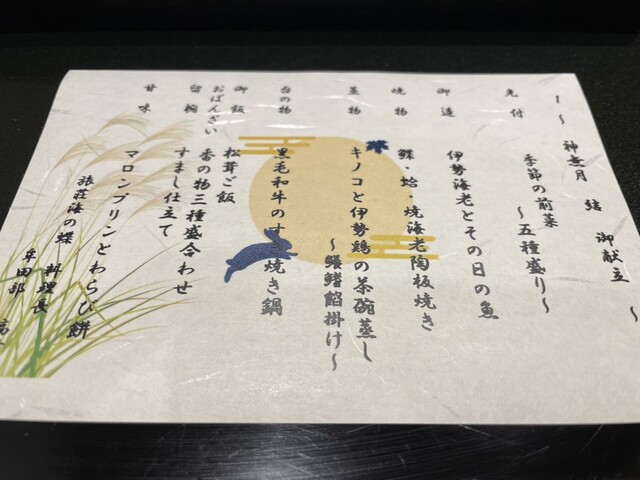 ～ 神無月 結 御献立 ～
先付 季節の前菜
～五種盛り～
御造 伊勢海老とその日の魚
焼物 鰈・蛤・焼海老陶板焼き
蒸物 キノコと伊勢鶏の茶碗蒸し
～鱶鰭餡掛け～
台の物 黒毛和牛のすき焼き鍋
御飯 松茸ご飯
おばんざい 香の物三種盛合わせ
留椀 すまし仕立て
甘味 マロンプリンとわらび餅
旅荘海の蝶 料理長
牟田部